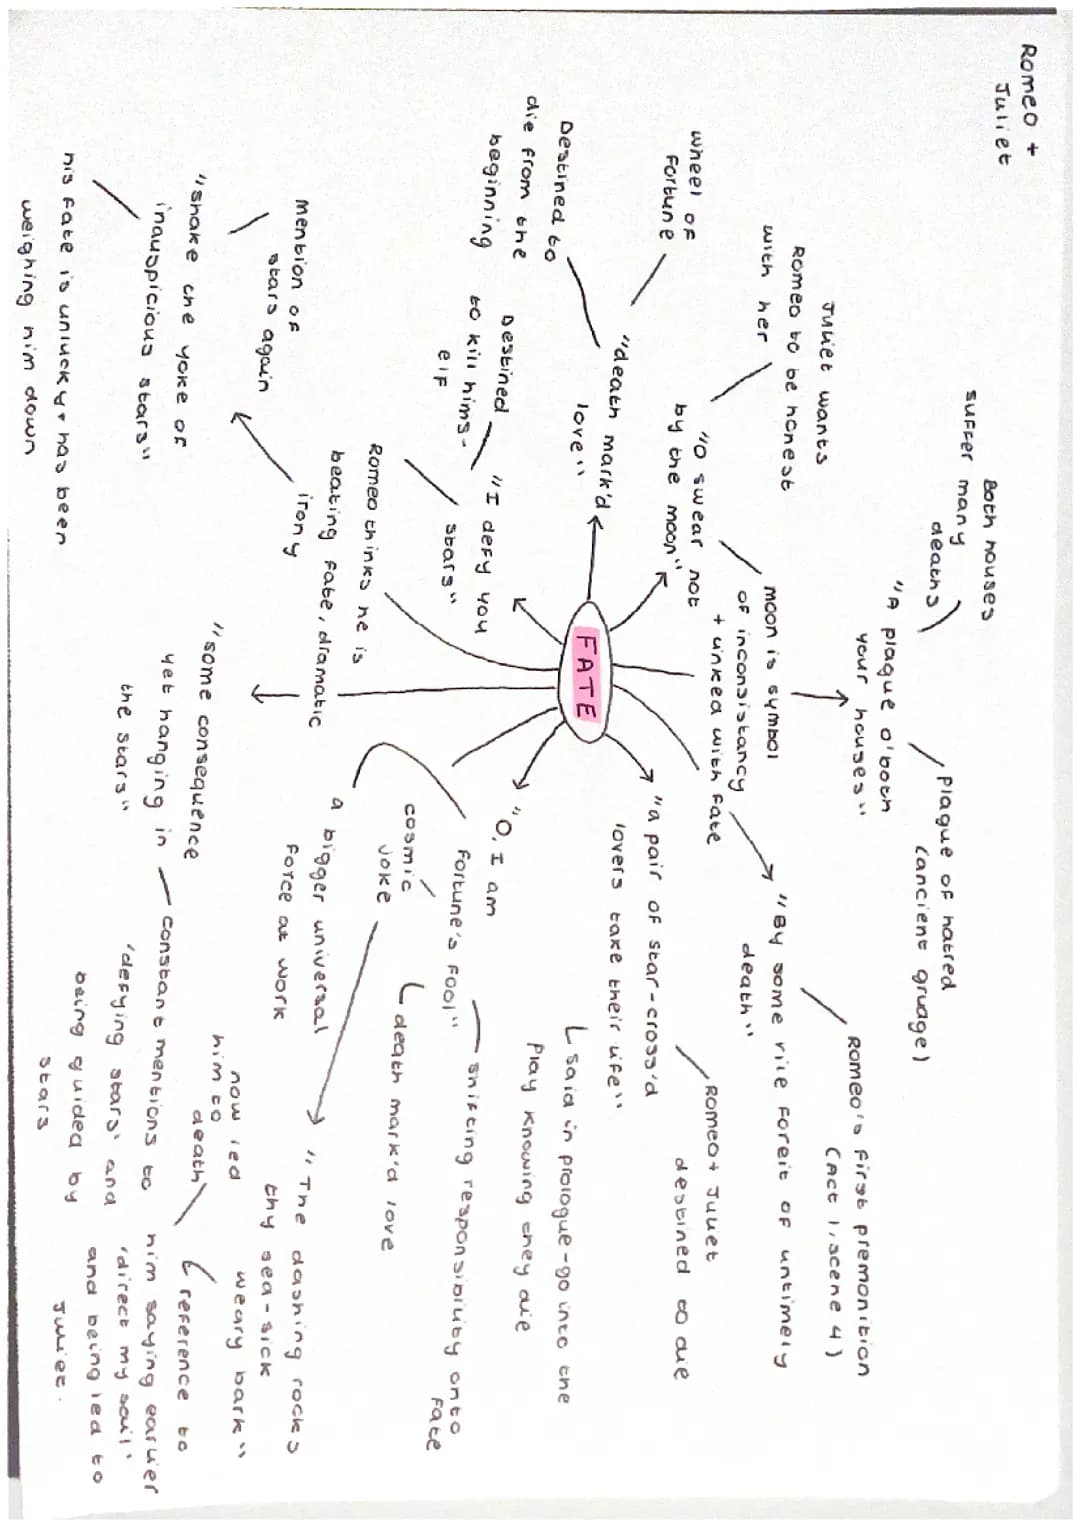 Romeo +
Juliet
Both houses
suffer many
deaths
"A plague o'both
your houses"
plague of hatred
(ancient grudge)
Juliet wants
Romeo to be honest
with her
"O swear not
by the moon"
moon is symbol
of inconsistancy
+ linked with fate
"By some vile foreit of untimely
death"
Romeo's first premonition
(Act 1, scene 4)
wheel of
fortune
Destined to
die from the
beginning
"death mark'd
love"
FATE
"a pair of star-cross'd
lovers take their life"
Romeo + Juliet
destined to die
said in prologue - go into the
play knowing they die
Destined
to kill hims-
elf
"I defy you
stars"
Romeo thinks he is
beating fate, dramatic
irony
"O, I am
fortune's fool"
shifting responsibility onto
fate
cosmic
joke
death mark'd love
a bigger universal
force at work
Mention of
stars again
"shake the yoke of
inauspicious stars"
his fate is unlucky + has been
weighing him down
"some consequence
yet hanging in
the stars"
constant mentions to
'defying stars' and
being guided by
stars
"The dashing rocks
thy sea-sick
weary bark"
now led
him to
death
reference to
him saying earlier
'direct my sail'
and being led to
Juliet.